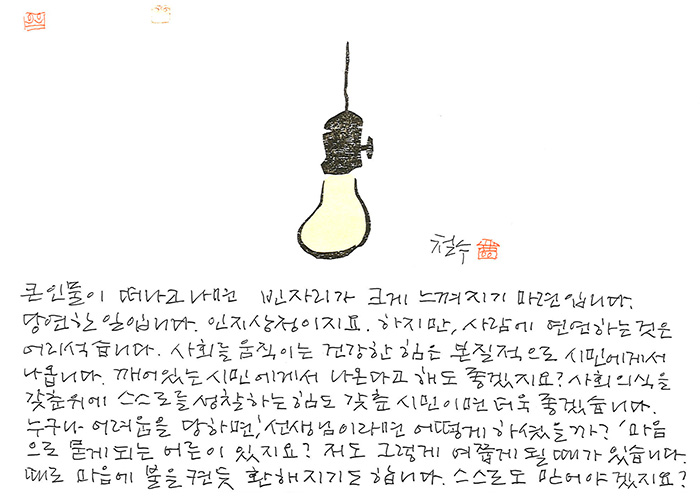 철수
큰 인물이 떠나고 나면 빈자리가 크게 느껴지기 마련입니다.
당연한 일입니다. 인지상정이지요. 하지만, 사람에 연연하는 것은
어리석습니다. 사회를 움직이는 건강한 힘은 본질적으로 시민에게서
나옵니다. 깨어있는 시민에게서 나온다고 해도 좋겠지요? 사회의식을
갖춘위에 스스로를 성찰하는 힘도 갖춘 시민이면 더욱 좋겠습니다.
누구나 어려움을 당하면, '선생님이라면 어떻게 하셨을까?' 마음
으로 묻게 되는 어른이 있지요? 저도 그렇게 여쭙게 될 때가 있습니다.
때로 마음에 불을 켠듯 환해지기도 합니다. 스스로도 믿어야겠지요?